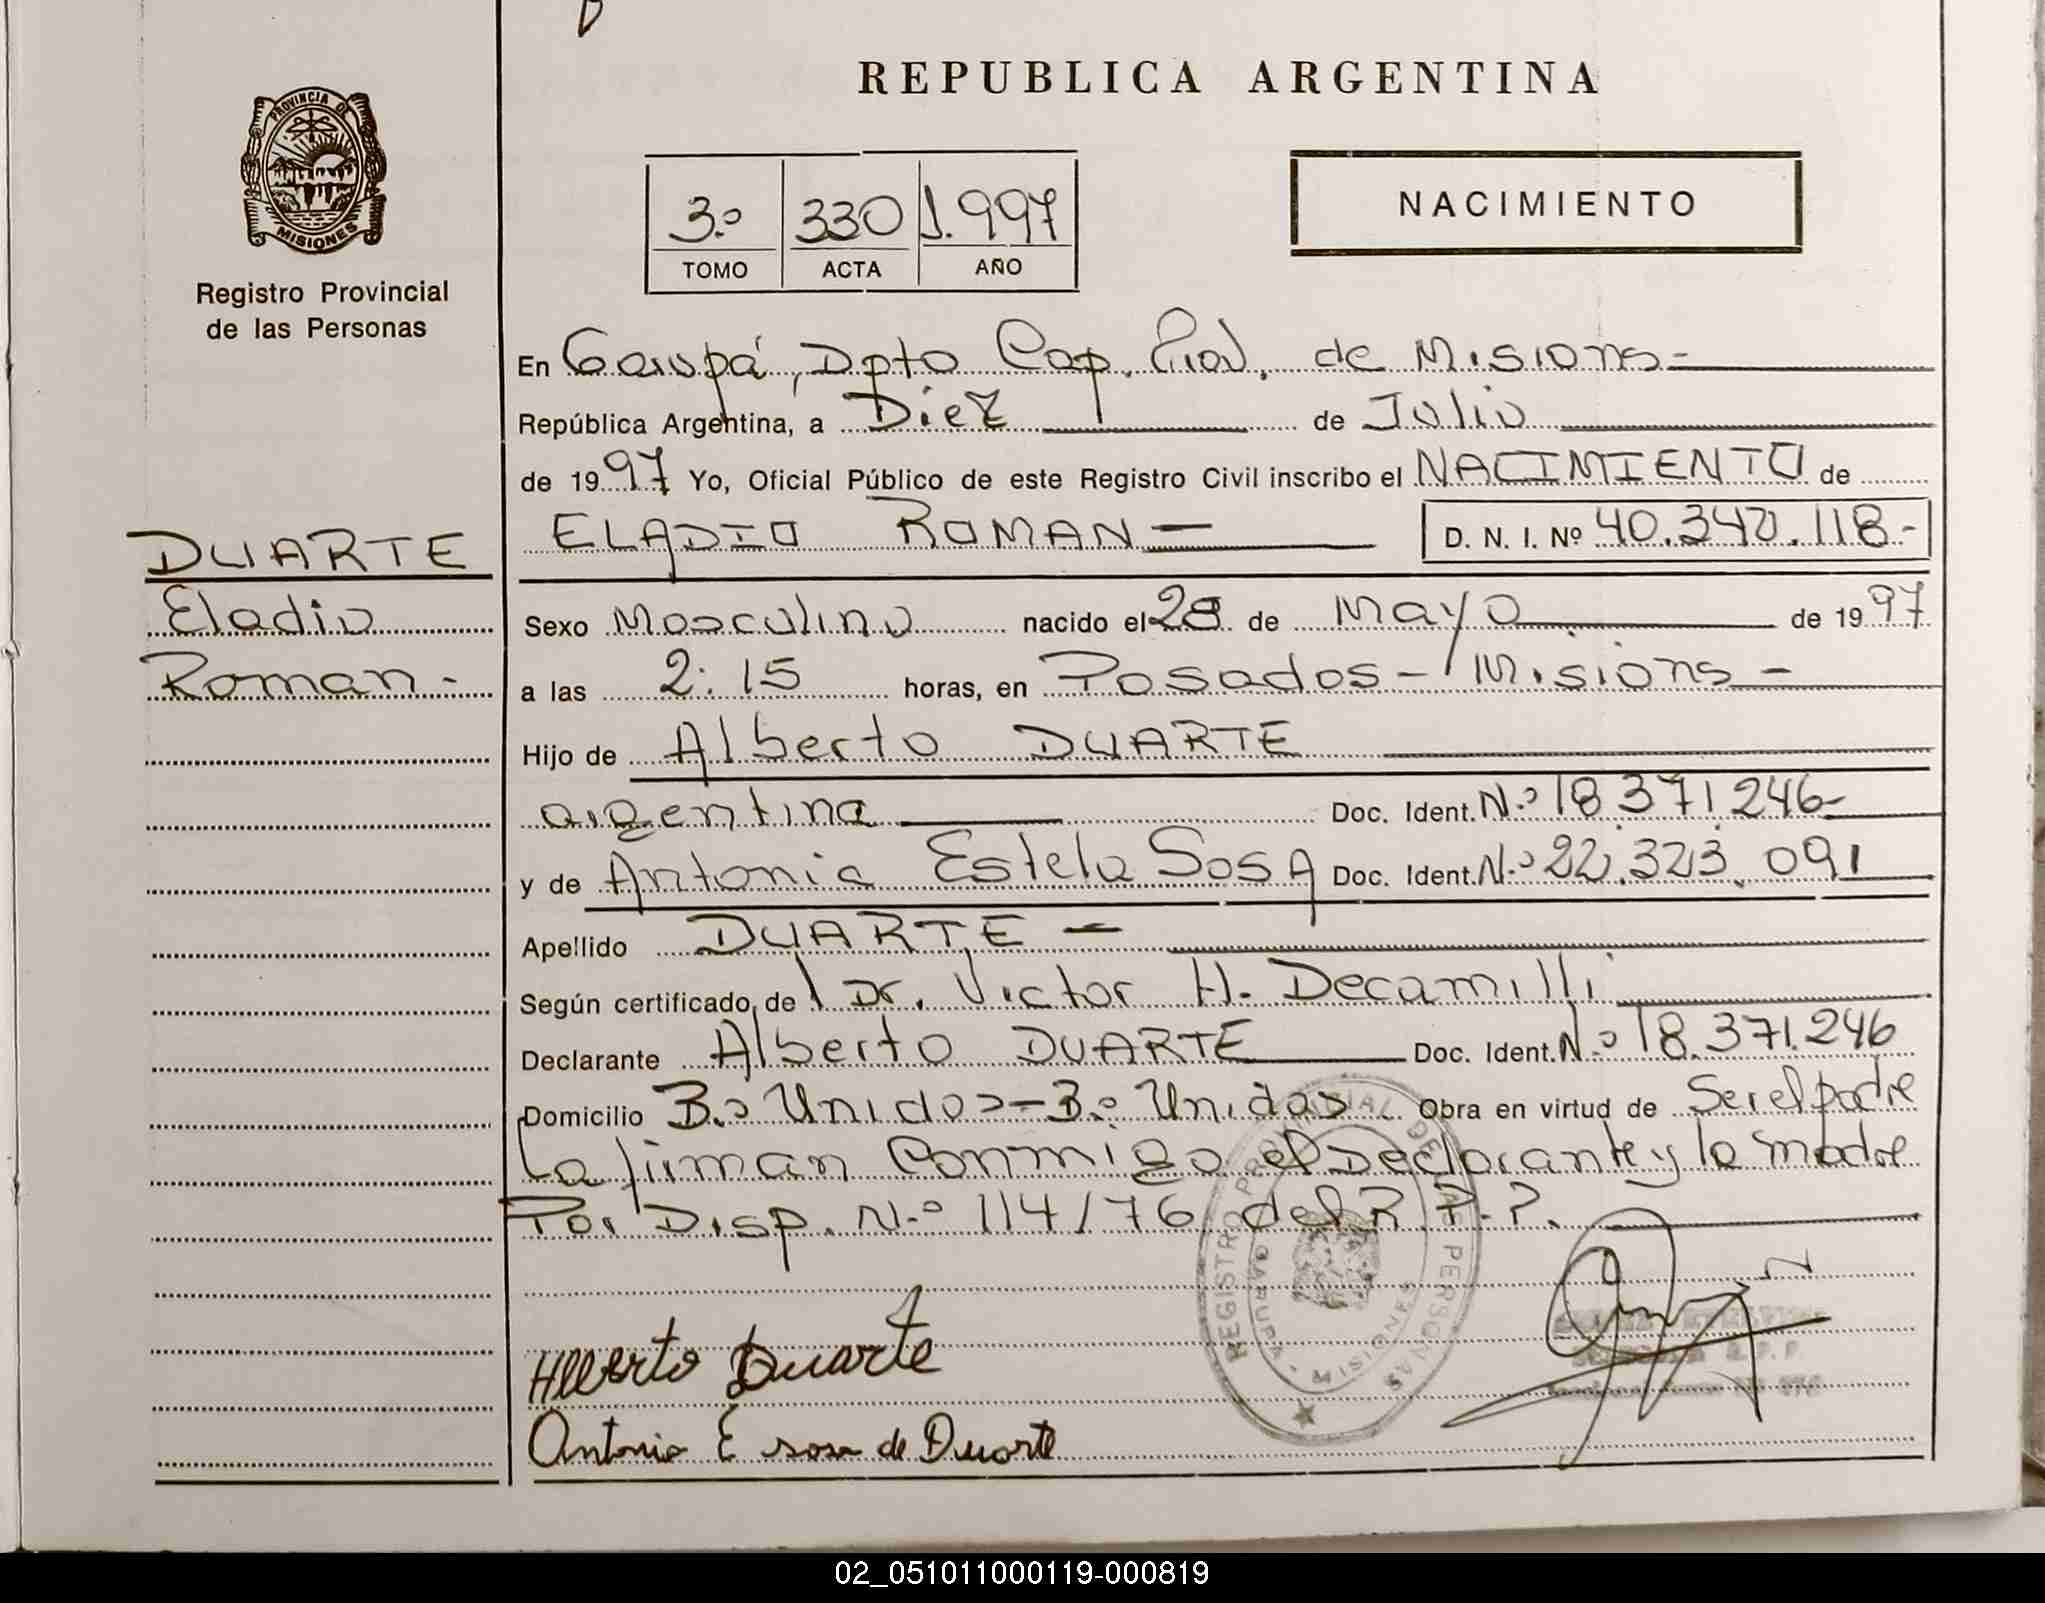 REPUBLICA ARGENTINA
PROVINCIA D
MISIONES
Registro Provincial
de las Personas
3.º 330 1.997
TOMO ACTA AÑO
NACIMIENTO
En Garupá, Dpto Cap. Prov. de Misions
República Argentina, a Diez de Julio
de 1997 Yo, Oficial Público de este Registro Civil inscribo el NACIMIENTO de
ELADIO ROMAN — D. N. I. Nº 40.340.118-
DUARTE
Eladio
Roman -
Sexo Masculino nacido el 28 de Mayo de 1997
a las 2:15 horas, en Posadas - Misions -
Hijo de Alberto DUARTE
argentina Doc. Ident. N.º 18.371.246-
y de Antonia Estela Sosa Doc. Ident. N.º 22.323.091
Apellido DUARTE —
Según certificado de Dr. Victor H. Decamilli
Declarante Alberto DUARTE Doc. Ident. N.º 18.371.246
Domicilio B.º Unidos - B.º Unidos Obra en virtud de Ser el padre
La firman Conmigo el Declarante y la madre
Por Disp. N.º 114/76 del R.P.P.
REGISTRO PROVINCIAL DE LAS PERSONAS
GARUPA
MISIONES
Alberto Duarte
Antonia E sosa de Duarte
02_051011000119-000819